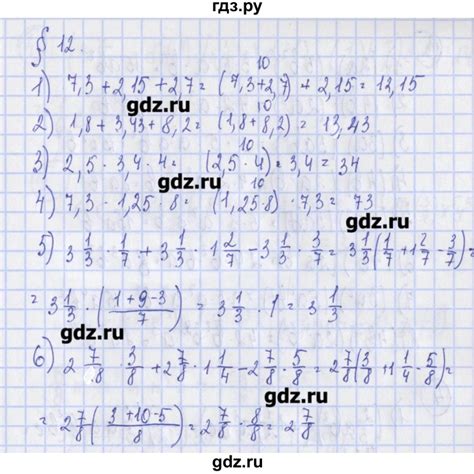 гдз.ру
§ 12.
10
1) 7,3 + 2,15 + 2,7 = (7,3 + 2,7) + 2,15 = 12,15
gdz.ru
10
2) 1,8 + 3,43 + 8,2 = (1,8 + 8,2) = 13,43
gdz.ru
10
3) 2,5 · 3,4 · 4 = (2,5 · 4) = 3,4 = 34
gdz.ru
10
4) 7,3 · 1,25 · 8 = (1,25·8) · 7,3 = 73
gdz.ru
5) 3 1/3 · 1/7 + 3 1/3 · 1 2/7 - 3 1/3 · 3/7 = 3 1/3 (1/7 + 1 2/7 - 3/7) =
gdz.ru
= 3 1/3 · ((1+9-3)/7) = 3 1/3 · 1 = 3 1/3
gdz.ru
6) 2 7/8 · 3/8 + 2 7/8 · 1 1/4 - 2 7/8 · 5/8 = 2 7/8 (3/8 + 1 1/4 - 5/8) =
gdz.ru
= 2 7/8 ((3+10-5)/8) = 2 7/8 · 8/8 = 2 7/8
gdz.ru